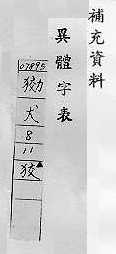 補充資料
異體字表
07895
㺃
犬
8
11
狡▲